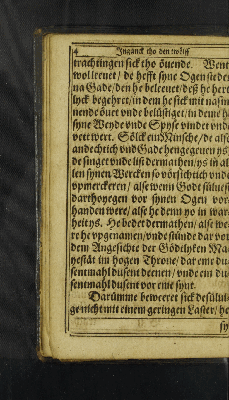 4 Inganck tho den twölff
trachtingen sick tho övende. Went
wol leevet / de hefft syne Ogen stedes
na Gade / den he beleevet / deß he hert
lyck begehret / in dem he sick mit
nende övet vnde belüstiget / in deme
syne Weyde vnde Spyse vindet vnde
vett wert. Sölck ein Minsche / de alse
andechtich vnd Gade hengegeven ys
de singet vnde list dermathen / ys in al
len synen Wercken so vörsichtich vnde
vpmerckeren / alse wenn Godt sülvest
darthoyegen vor synen Ogen vor
handen were / alse he denn yo in war
heit ys. He bedet dermathen / alse we
re he vpgenamen / vnde stünde dar vor
dem Angesichte der Gödtlyken Ma
yestät im hogen Throne / dar em du
sentmahl dusent deenen / vnde ein du
sentmahl dusent vor em synt.
Darümme beweeret sick desülve
ge nicht mit einem geringen Laster / he
sy